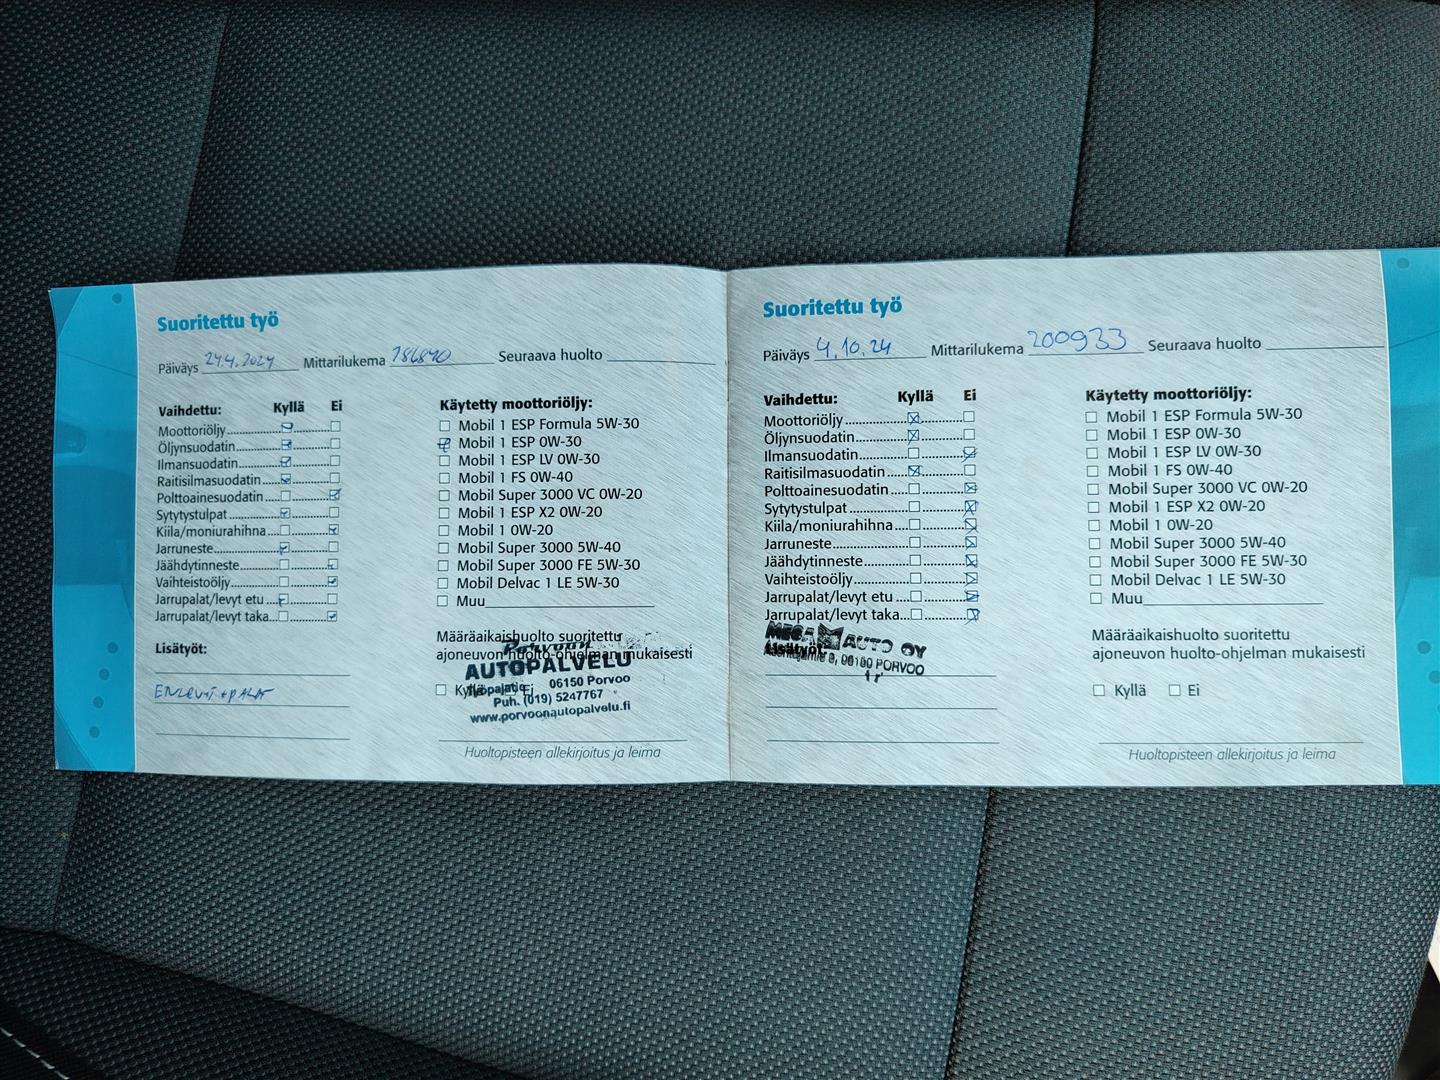 Suoritettu työ
Päiväys 24.4.2024 Mittarilukema 186840 Seuraava huolto
Vaihdettu: Kyllä Ei
Moottoriöljy
Öljynsuodatin
Ilmansuodatin
Raitisilmasuodatin
Polttoainesuodatin
Sytytystulpat
Kiila/moniurahihna
Jarruneste
Jäähdytinneste
Vaihteistoöljy
Jarrupalat/levyt etu
Jarrupalat/levyt taka
Lisätyöt:
Käytetty moottoriöljy:
Mobil 1 ESP Formula 5W-30
Mobil 1 ESP 0W-30
Mobil 1 ESP LV 0W-30
Mobil 1 FS 0W-40
Mobil Super 3000 VC 0W-20
Mobil 1 ESP X2 0W-20
Mobil 1 0W-20
Mobil Super 3000 5W-40
Mobil Super 3000 FE 5W-30
Mobil Delvac 1 LE 5W-30
Muu
Määräaikaishuolto suoritettu
ajoneuvon huolto-ohjelman mukaisesti
Kyllä Ei
Porvoon
AUTOPALVELU
06150 Porvoo
Puh. (019) 5247767
www.porvoonautopalvelu.fi
Huoltopisteen allekirjoitus ja leima
Suoritettu työ
Päiväys 4.10.24 Mittarilukema 200933 Seuraava huolto
Vaihdettu: Kyllä Ei
Moottoriöljy
Öljynsuodatin
Ilmansuodatin
Raitisilmasuodatin
Polttoainesuodatin
Sytytystulpat
Kiila/moniurahihna
Jarruneste
Jäähdytinneste
Vaihteistoöljy
Jarrupalat/levyt etu
Jarrupalat/levyt taka
MEGA AUTO OY
Lisätyöt:
06100 PORVOO
Käytetty moottoriöljy:
Mobil 1 ESP Formula 5W-30
Mobil 1 ESP 0W-30
Mobil 1 ESP LV 0W-30
Mobil 1 FS 0W-40
Mobil Super 3000 VC 0W-20
Mobil 1 ESP X2 0W-20
Mobil 1 0W-20
Mobil Super 3000 5W-40
Mobil Super 3000 FE 5W-30
Mobil Delvac 1 LE 5W-30
Muu
Määräaikaishuolto suoritettu
ajoneuvon huolto-ohjelman mukaisesti
Kyllä Ei
Huoltopisteen allekirjoitus ja leima